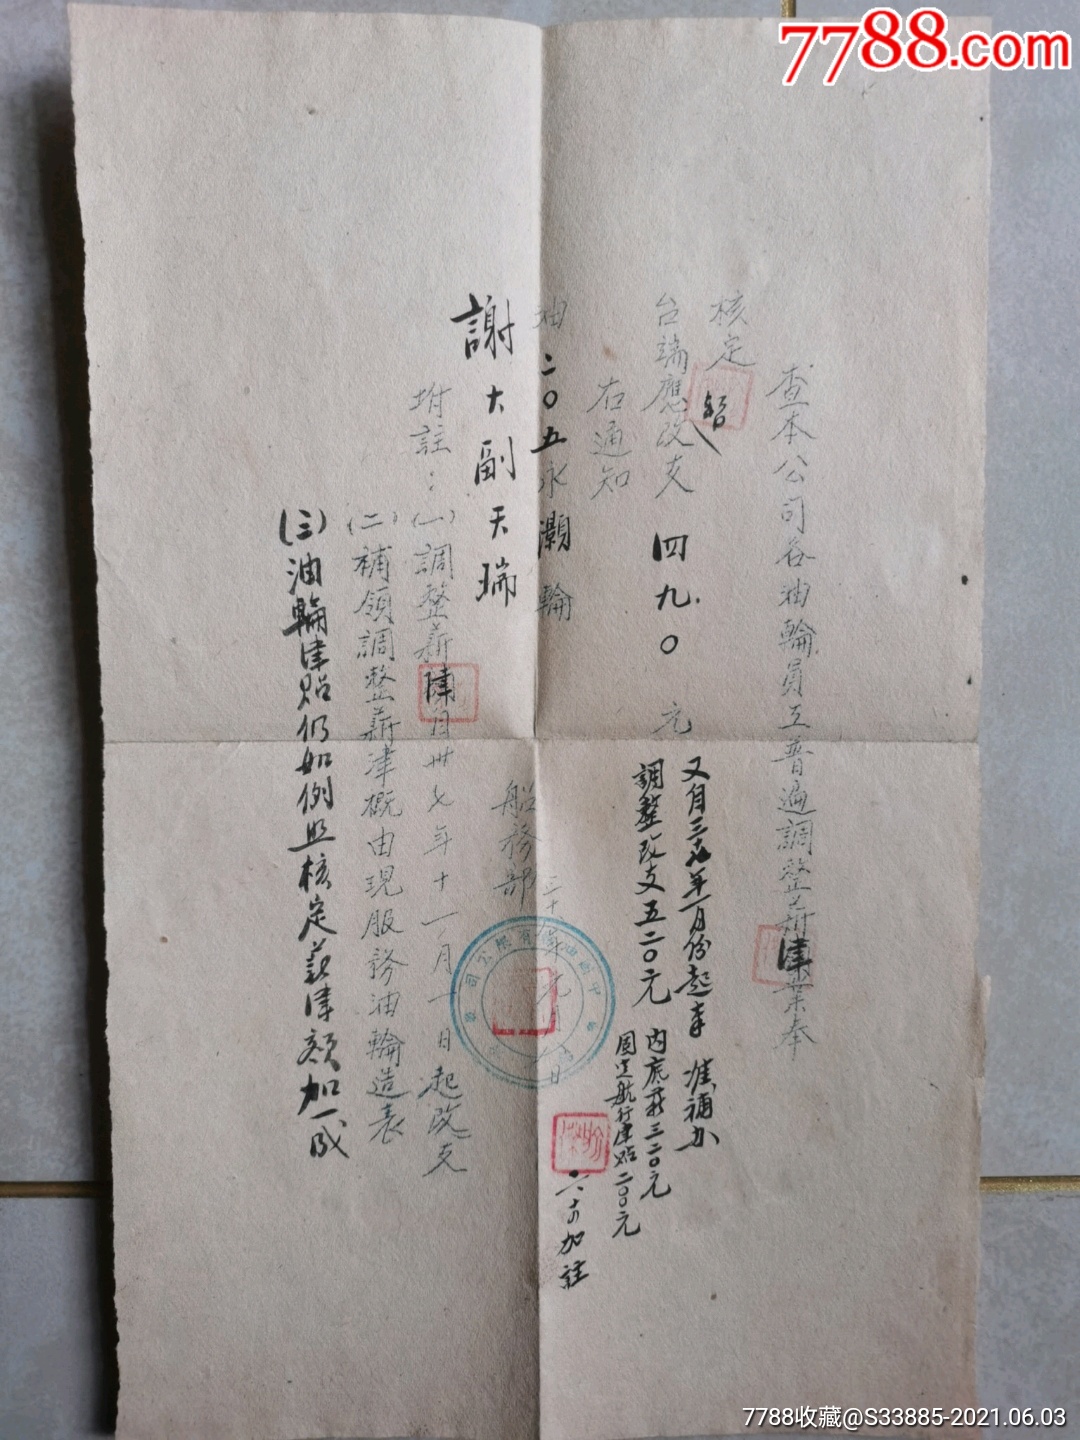 7788.com
查本公司各油輪員工普遍調整薪津業奉
核定暫
台端應改支 四九〇 元
又自三十八年一月份起奉准補加
調整改支五二〇元
內底薪三二〇元
固定航行津貼二〇〇元
加註
右通知
油二〇五永灝輪
謝大副天瑞
船務部
三十八年元月
附註：(一)調整薪津自卅七年十一月一日起改支
(二)補領調整薪津概由現服務油輪造表
(三)油輪津貼仍如例照核定薪津額加一成
7788收藏@S33885-2021.06.03